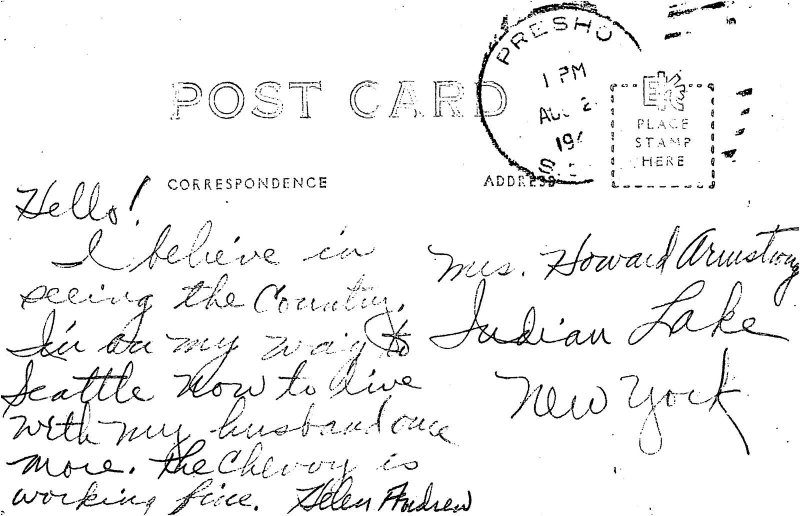 PRESHO
1 PM
AUG 2
194
S.
POST CARD
EKC
PLACE
STAMP
HERE
CORRESPONDENCE
ADDRESS
Hello!
I believe in
seeing the Country.
I'm on my way to
Seattle now to live
with my husband once
more. The Chevvy is
working fine. Helen Andrew
Mrs. Howard Armstrong
Indian Lake
New York